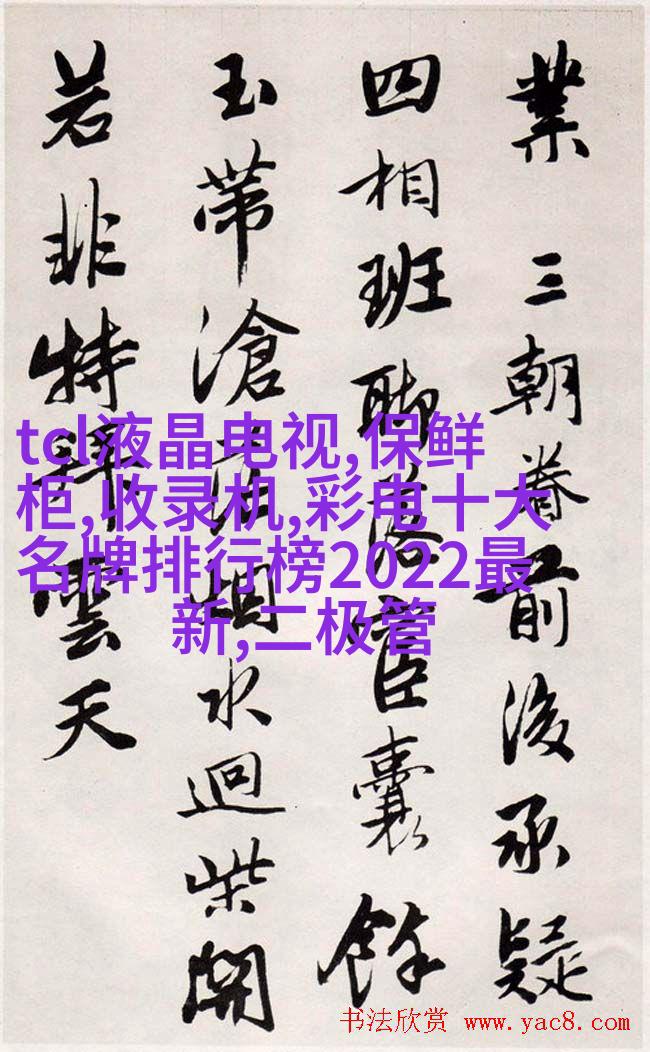 業 三朝眷前後承疑
四相班聊落宦囊餘
玉帶滄烟水迴柴開
若非特雲天
tcl液晶电视,保鲜
柜,收录机,彩电十大
名牌排行榜2022最
新,二极管
书法欣赏 www.yac8.com